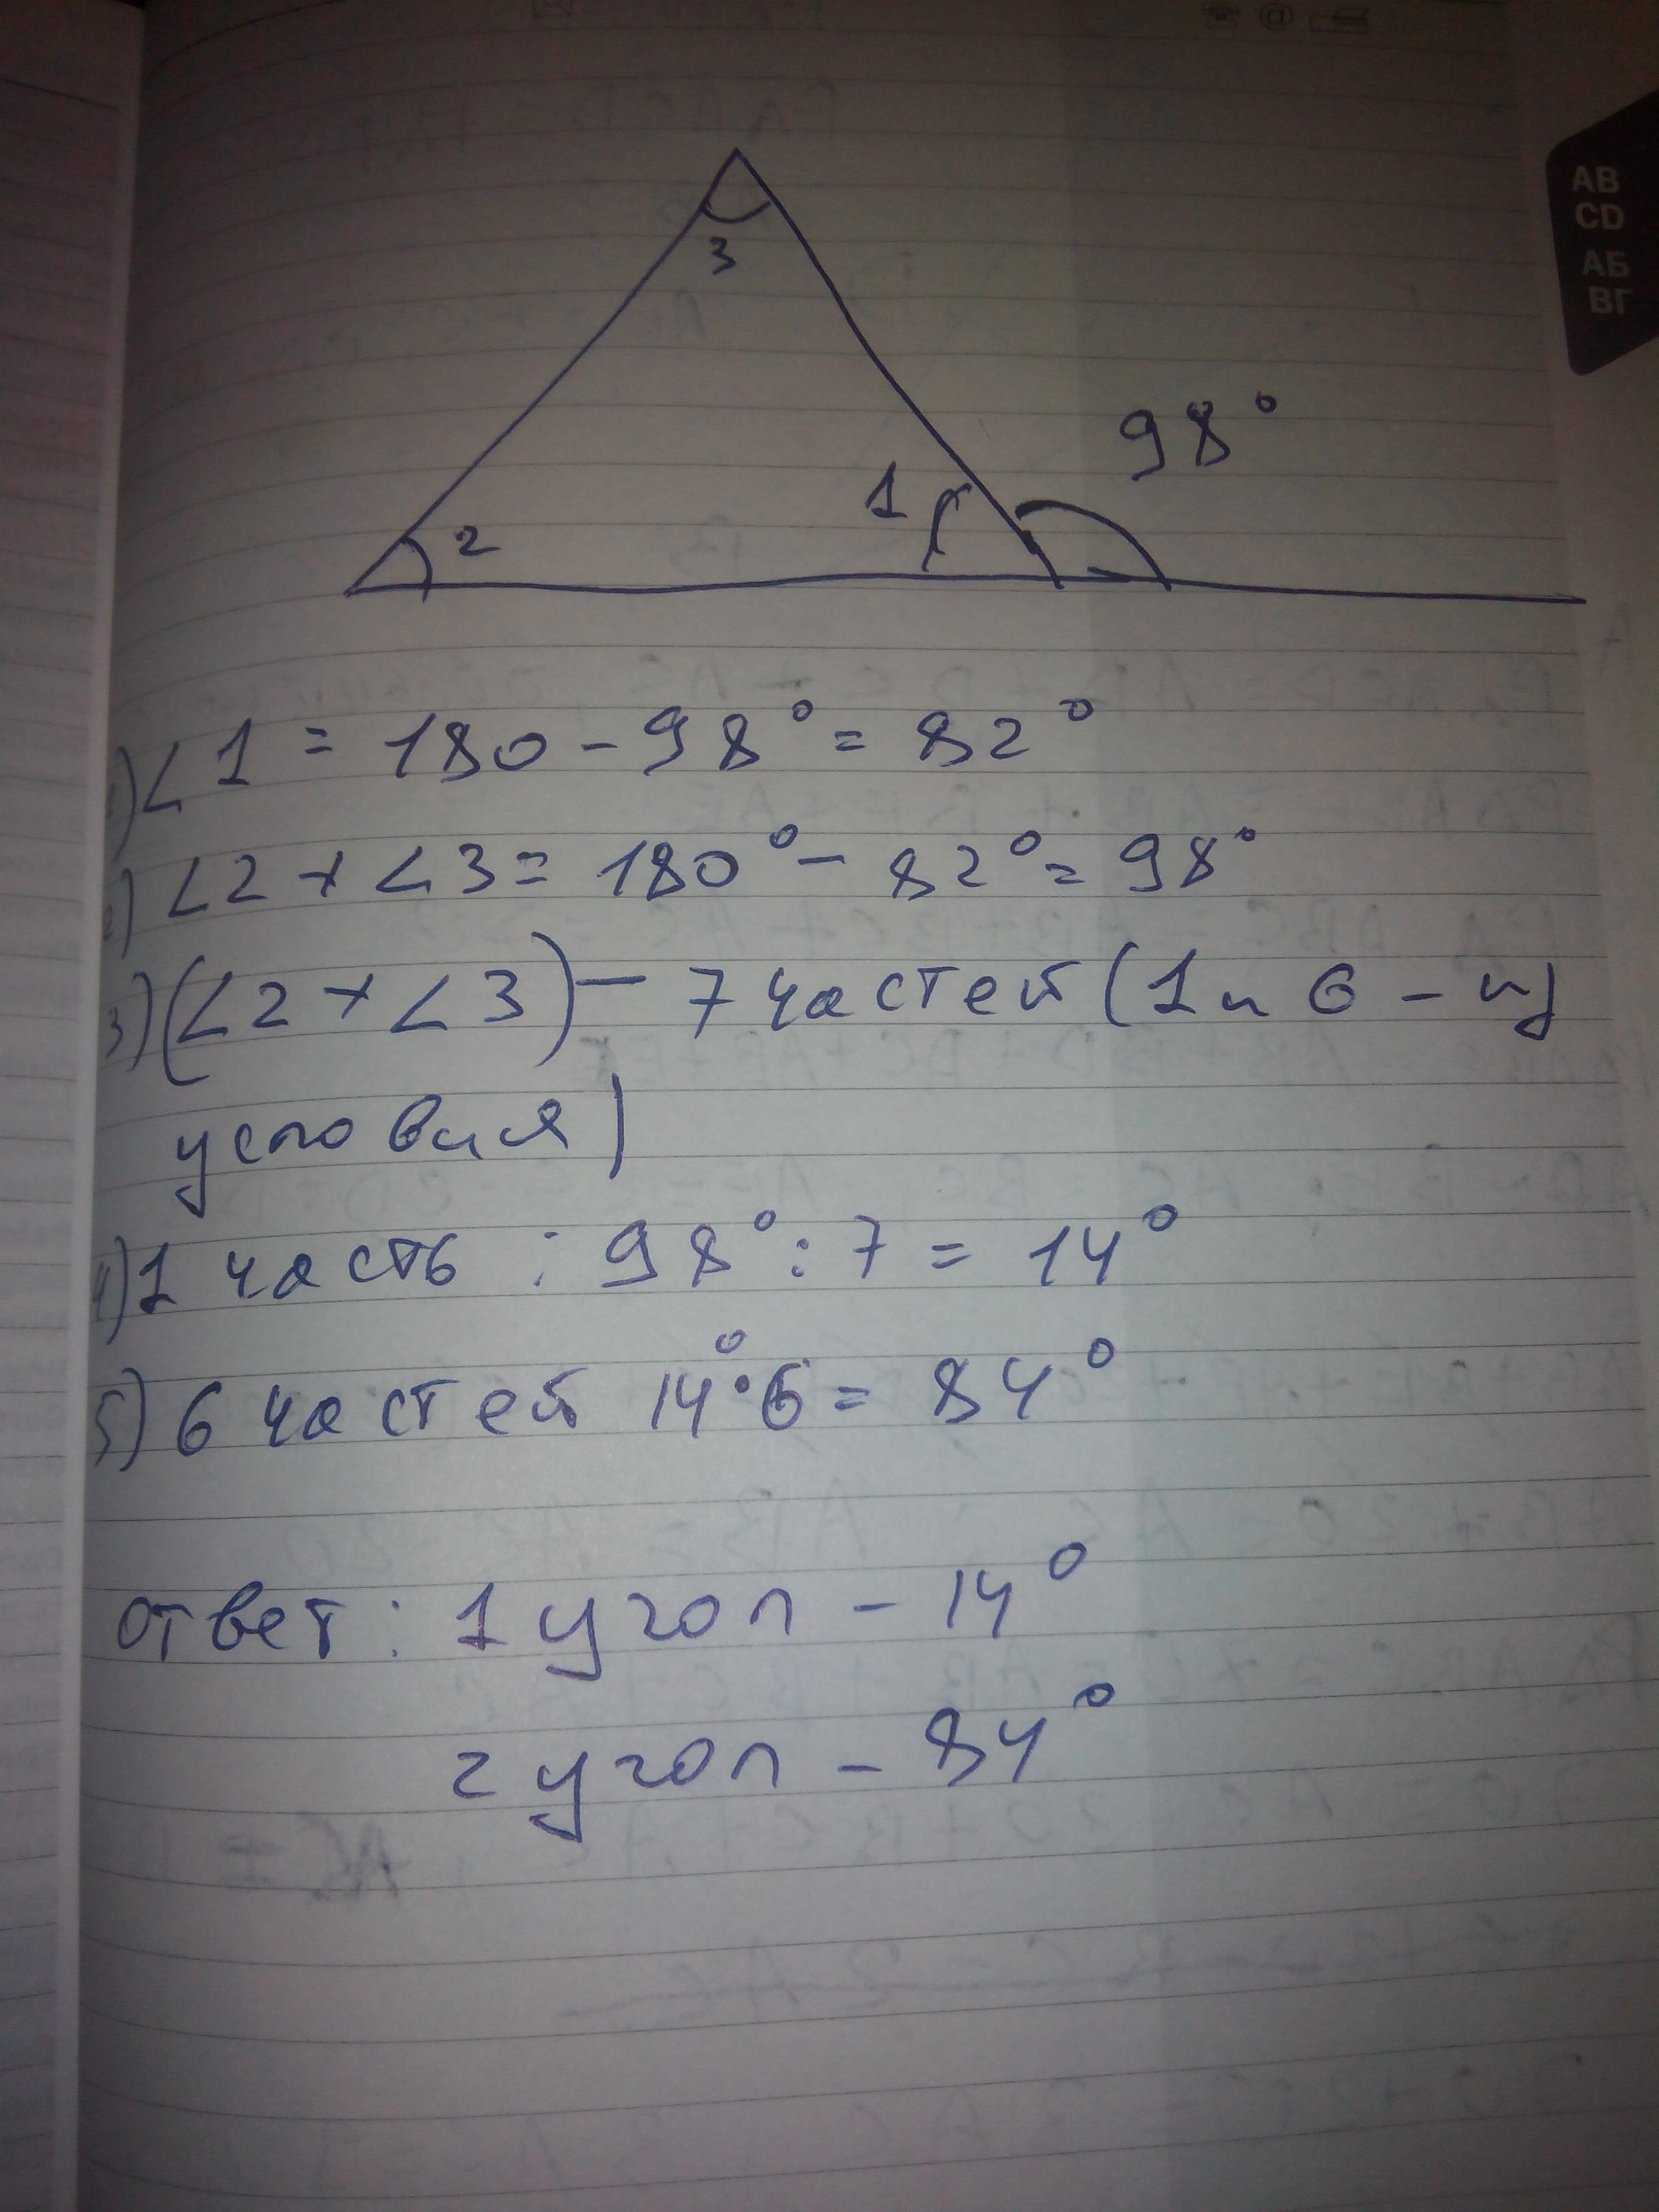 AB
CD
АБ
ВГ
3
98°
1
2
1) ∠1 = 180 - 98° = 82°
2) ∠2 + ∠3 = 180° - 82° = 98°
3) (∠2 + ∠3) - 7 частей (1 и 6 - из
условия)
4) 1 часть : 98° : 7 = 14°
5) 6 частей 14° · 6 = 84°
ответ: 1 угол - 14°
2 угол - 84°